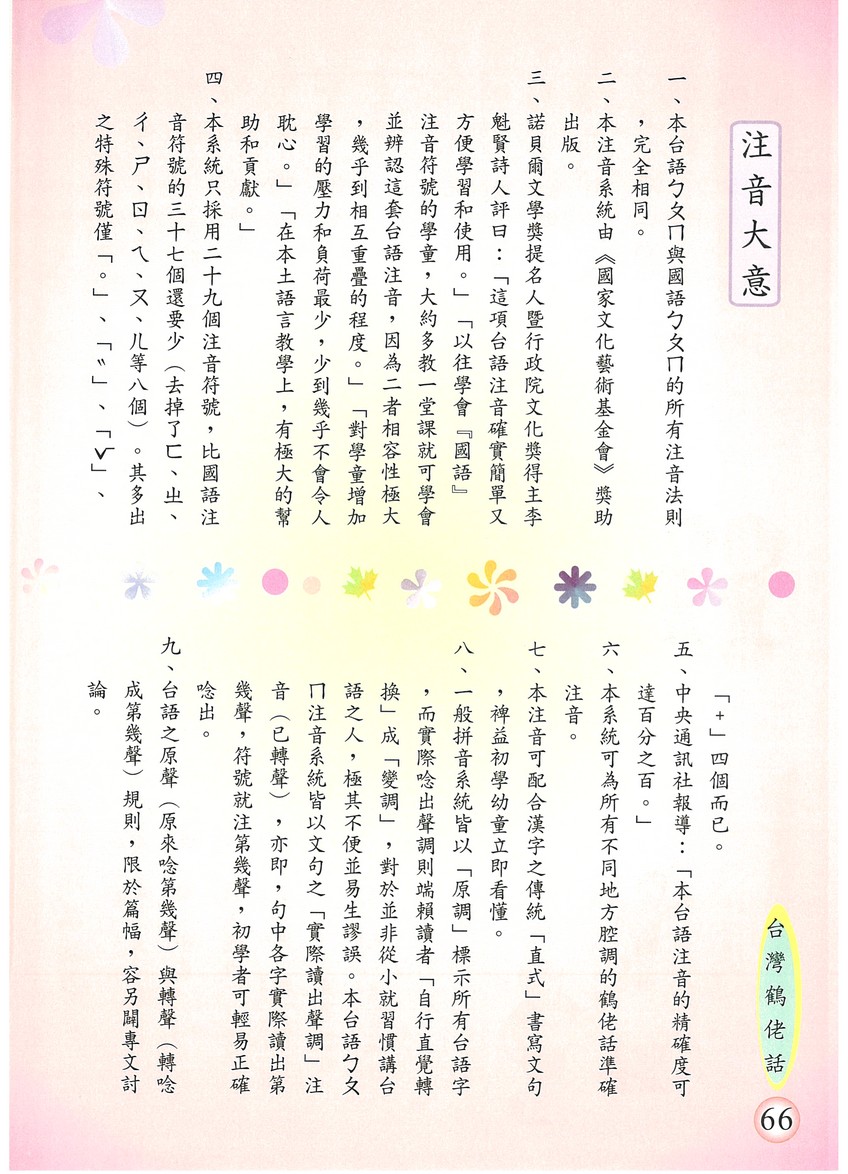 注音大意
一、本台語ㄅㄆㄇ與國語ㄅㄆㄇ的所有注音法則
，完全相同。
二、本注音系統由《國家文化藝術基金會》獎助
出版。
三、諾貝爾文學獎提名人暨行政院文化獎得主李
魁賢詩人評曰：「這項台語注音確實簡單又
方便學習和使用。」「以往學會『國語』
注音符號的學童，大約多教一堂課就可學會
並辨認這套台語注音，因為二者相容性極大
，幾乎到相互重疊的程度。」「對學童增加
學習的壓力和負荷最少，少到幾乎不會令人
耽心。」「在本土語言教學上，有極大的幫
助和貢獻。」
四、本系統只採用二十九個注音符號，比國語注
音符號的三十七個還要少（去掉了ㄈ、ㄓ、
ㄔ、ㄕ、ㄖ、ㄟ、ㄡ、ㄦ等八個）。其多出
之特殊符號僅「。」、「〃」、「ˇ」、
「+」四個而已。
五、中央通訊社報導：「本台語注音的精確度可
達百分之百。」
六、本系統可為所有不同地方腔調的鶴佬話準確
注音。
七、本注音可配合漢字之傳統「直式」書寫文句
，裨益初學幼童立即看懂。
八、一般拼音系統皆以「原調」標示所有台語字
，而實際唸出聲調則端賴讀者「自行直覺轉
換」成「變調」，對於並非從小就習慣講台
語之人，極其不便並易生謬誤。本台語ㄅㄆ
ㄇ注音系統皆以文句之「實際讀出聲調」注
音（已轉聲），亦即，句中各字實際讀出第
幾聲，符號就注第幾聲，初學者可輕易正確
唸出。
九、台語之原聲（原來唸第幾聲）與轉聲（轉唸
成第幾聲）規則，限於篇幅，容另闢專文討
論。
台灣鶴佬話
66